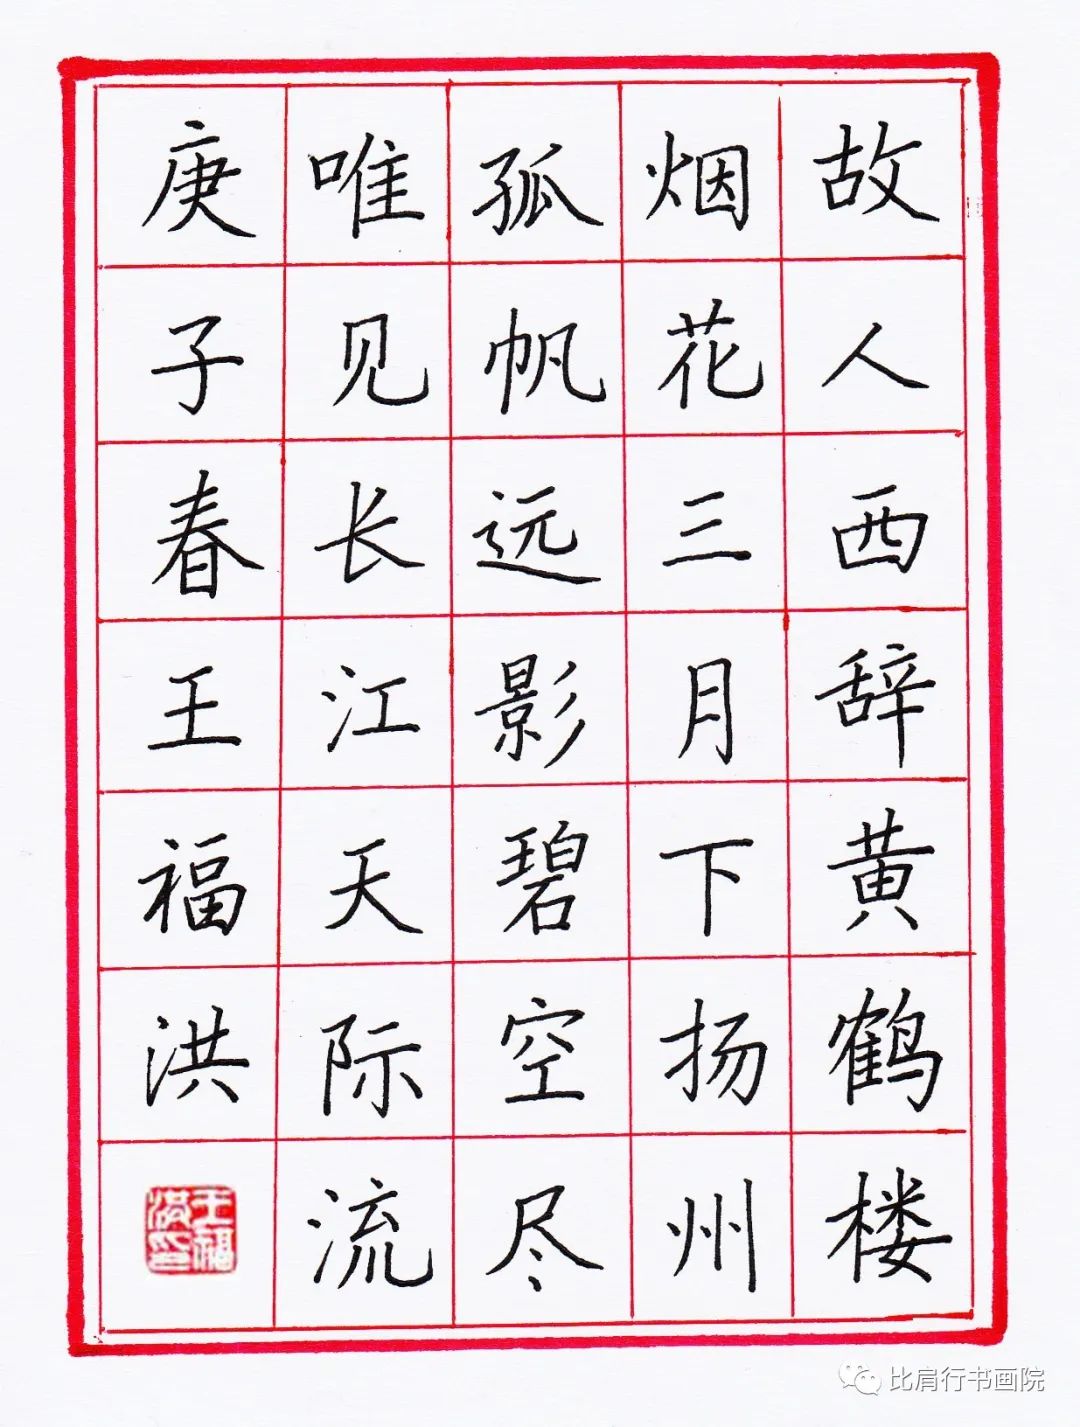 故人西辞黄鹤楼
烟花三月下扬州
孤帆远影碧空尽
唯见长江天际流
庚子春王福洪
王福洪印
比肩行书画院